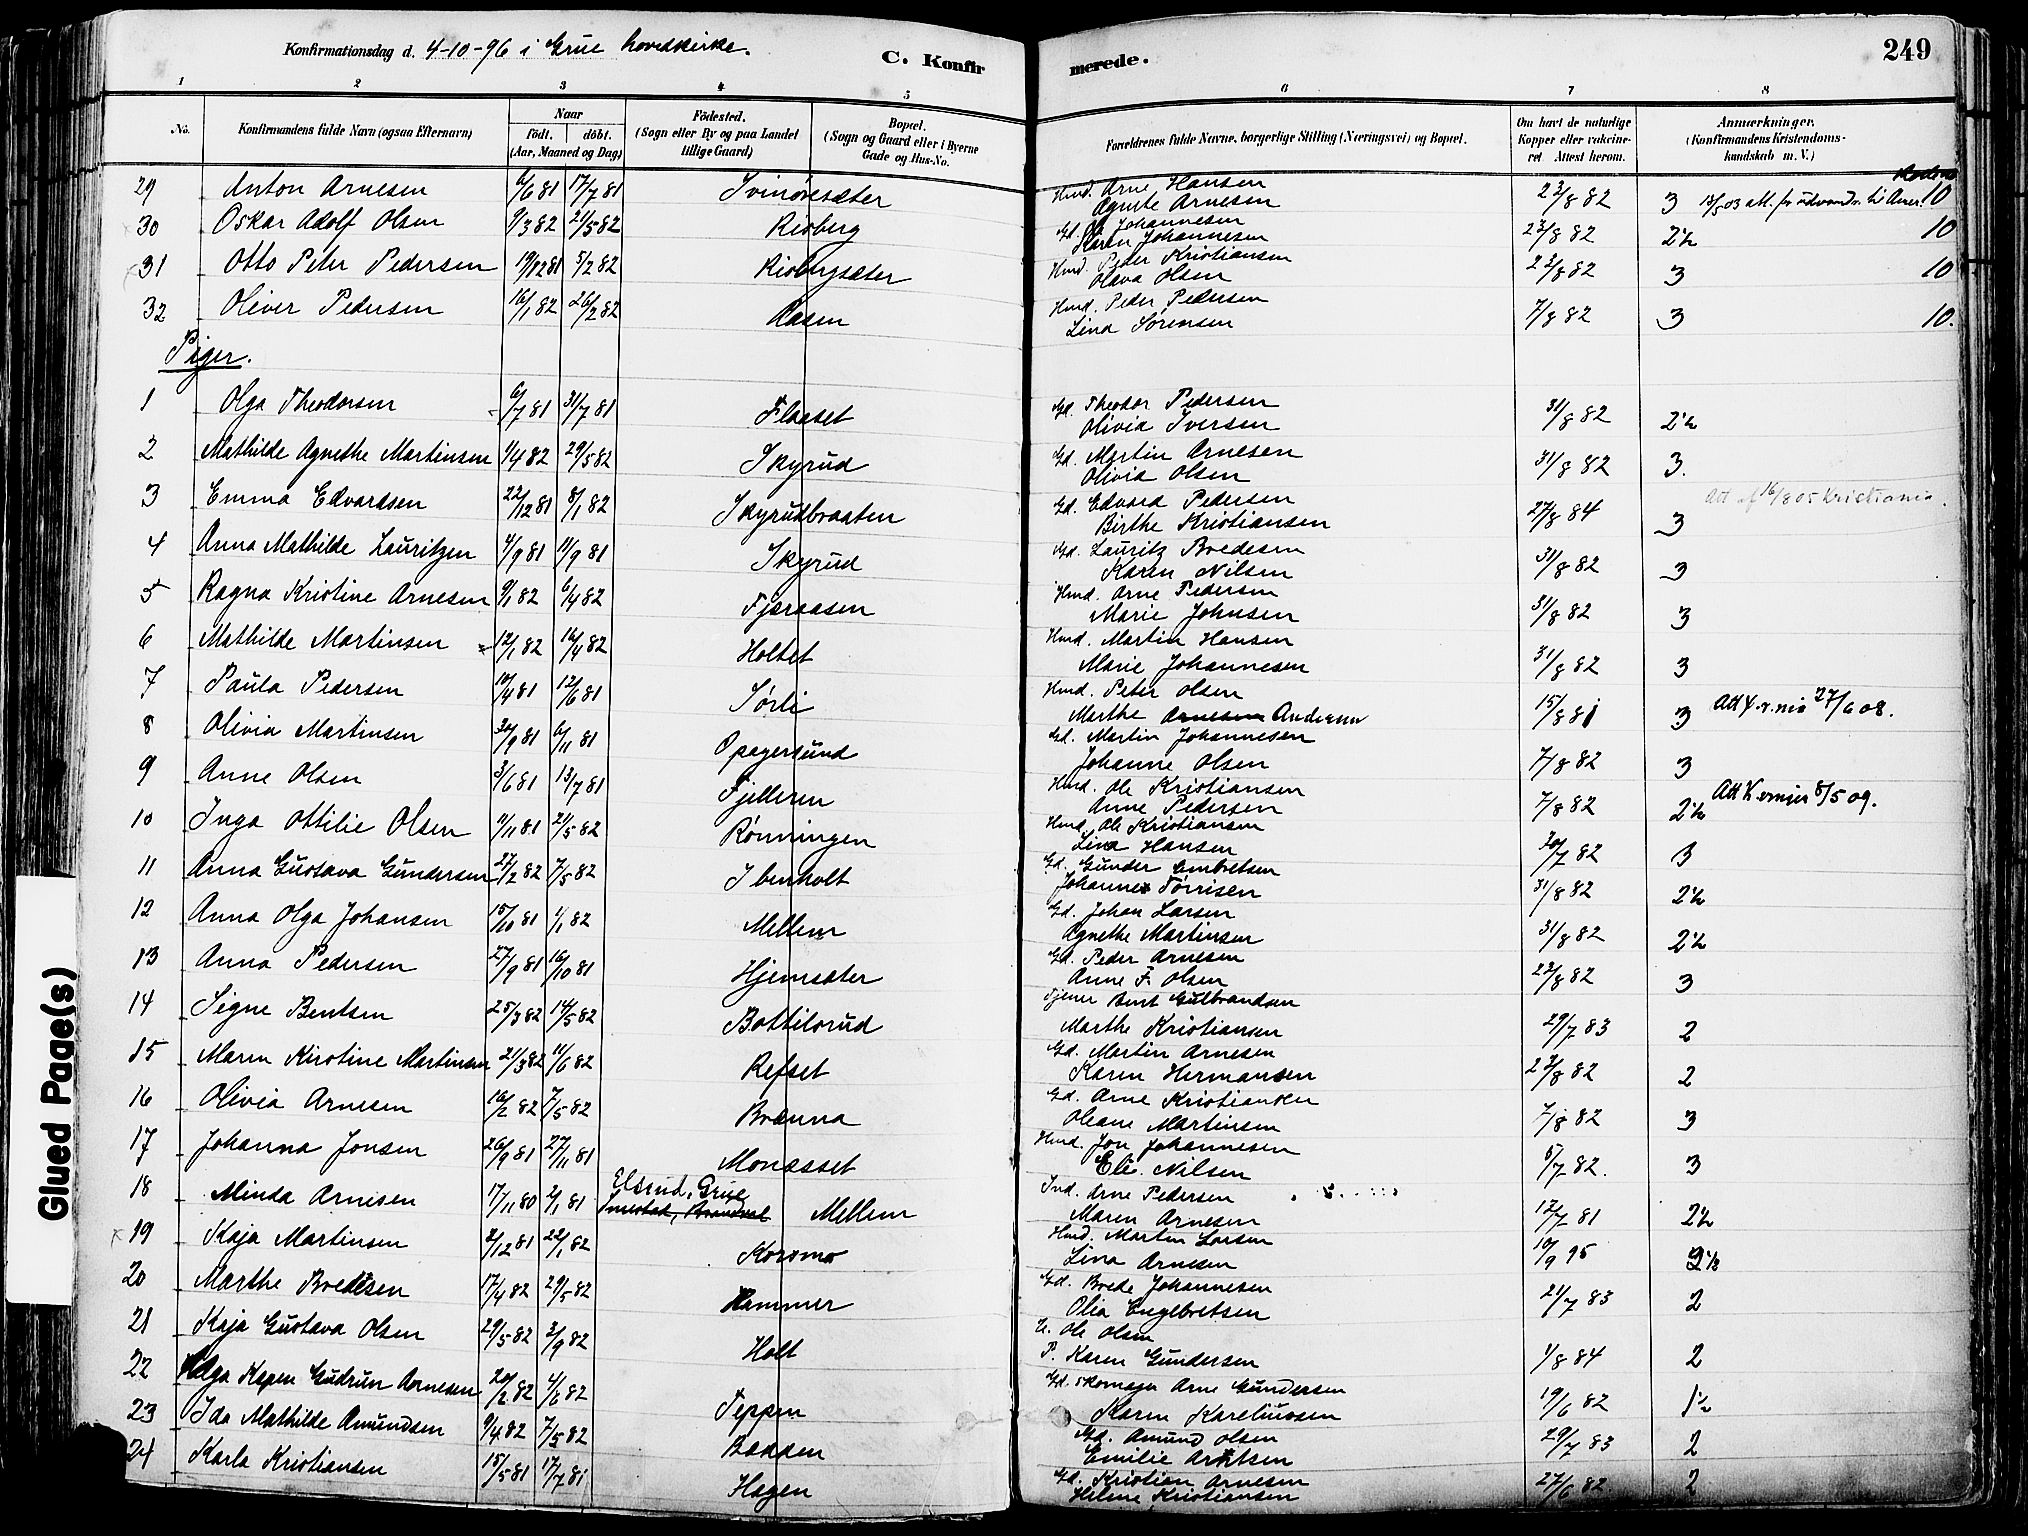 Konfirmationsdag d. 4-10-96 i Grue hovedkirke.
C. Konfirmerede.
249
1 2 3 4 5 6 7 8
No.
Konfirmandens fulde Navn (ogsaa Efternavn)
Naar
født. døbt.
(Aar, Maaned og Dag)
Födested.
(Sogn eller By og paa Landet
tillige Gaard)
Bopæl.
(Sogn og Gaard eller i Byerne
Gade og Hus-No.
Forældrenes fulde Navne, borgerlige Stilling (Næringsvei) og Bopæl.
Om havt de naturlige
Kopper eller vakcine-
ret Attest herom.
Anmærkninger.
(Konfirmandens Kristendoms-
kundskab m. V.)
29 Anton Arnesen 6/6 81 17/7 81 Svinøresæter Hmd. Arne Hansen Agnete Arnesen 23/8 82 3 att. for udvandr. til Amer. 10
30 Oskar Adolf Olsen 9/3 82 21/5 82 Risberg Gd. Ole Johannesen Karen Johannesen 23/8 82 2½ 10
31 Otto Peter Pedersen 19/12 81 5/2 82 Risbergsæter Hmd. Peder Kristiansen Olava Olsen 23/8 82 3 10
32 Oliver Pedersen 16/1 82 26/2 82 Aasen Hmd. Peder Pedersen Lina Sørensen 7/8 82 3 10.
Piger.
1 Olga Theodorsen 6/7 81 31/7 81 Flaaset Gd. Theodor Pedersen Olivia Iversen 31/8 82 2½
2 Mathilde Agnethe Martinsen 1/4 82 29/5 82 Skyrud Gd. Martin Arnesen Olivia Olsen 31/8 82 3.
3 Emma Edvardsen 22/12 81 8/1 82 Skyrudbraaten Gd. Edvard Pedersen Birthe Kristiansen 27/8 84 3 Att af 16/8 05 Kristiania.
4 Anna Mathilde Lauritzen 4/9 81 11/9 81 Skyrud Gd. Lauritz Bredesen Karen Nilsen 31/8 82 3
5 Ragna Kristine Arnesen 9/1 82 6/4 82 Fjæraasen Hmd. Arne Pedersen Marie Johnsen 31/8 82 3
6 Mathilde Martinsen 12/1 82 16/4 82 Holtet Hmd. Martin Hansen Marie Johannesen 31/8 82 3
7 Paula Pedersen 10/4 81 12/6 81 Sørli Hmd. Peter Olsen Marthe Arnesen Andersen 15/8 81 3 27/6 08.
8 Olivia Martinsen 30/9 81 6/11 81 Opagersund Gd. Martin Johannesen Johanne Olsen 7/8 82 3
9 Anne Olsen 3/6 81 13/7 81 Fjelleren Hmd. Ole Kristiansen Anne Pedersen 7/8 82 2½ 8/5 09.
10 Inga Ottilie Olsen 11/11 81 21/5 82 Rønningen Hmd. Ole Kristiansen Lina Hansen 30/7 82 3
11 Anna Gustava Gundersen 27/2 82 7/5 82 Ibenholt Gd. Gunder Embretsen Johanne Tørrisen 31/8 82 2½
12 Anna Olga Johansen 15/10 81 1/1 82 Mellem Gd. Johan Larsen Agnethe Martinsen 31/8 82 2½
13 Anna Pedersen 27/9 81 16/10 81 Hjemsæter Gd. Peder Arnesen Anne F. Olsen 23/8 82 3
14 Signe Bentsen 25/3 82 14/5 82 Bottilsrud Tjener Bent Gulbrandsen Marthe Kristiansen 29/7 83 2
15 Maren Kirstine Martinsen 21/3 82 11/6 82 Refset Gd. Martin Arnesen Karen Hermansen 23/8 82 2
16 Olivia Arnesen 16/2 82 7/5 82 Brænna Gd. Arne Kristiansen Oleane Martinsen 7/8 82 3
17 Johanna Jonsen 26/9 81 27/11 81 Monæsset Hmd. Jon Johannesen Eli Nilsen 5/7 82. 3
18 Minda Arnesen 17/11 80 2/1 81 Elsrud, Grue Mellem Ind. Arne Pedersen Maren Arnesen 12/7 81 2½
19 Kaja Martinsen 2/12 81 22/1 82 Korsmo Hmd. Martin Larsen Lina Arnesen 10/9 95 2½
20 Marthe Bredesen 17/4 82 29/5 82 Hammer Gd. Brede Johannesen Olia Engebretsen 21/7 83 2
21 Kaja Gustava Olsen 29/5 82 3/9 82 Holt U. Ole Olsen P. Karen Gundersen 1/8 84 2
22 Helga Karen Gudrun Arnesen 20/2 82 4/6 82 Teppen Gd. skomager Arne Gundersen Karen Kareliussen 19/6 82 1½
23 Ida Mathilde Amundsen 9/4 82 7/5 82 Bakken Gd. Amund Olsen Emilie Arntsen 29/7 83 2
24 Karla Kristiansen 15/5 81 17/7 81 Hagen Gd. Kristian Arnesen Helene Kristiansen 27/6 82 2
Glued Page(s)